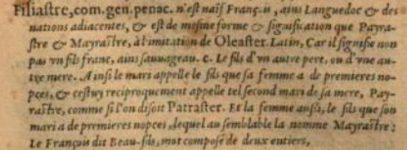 Filiastre, com. gen. penac. n'est naïf Franç.n, ains Languedoc & des
nations adiacentes, & est de mesme forme & signification que Payra-
stre & Mayrastre, à l'imitation de Oleaster. Latin, Car il signifie non
pas vn fils franc, ains sauuageau. C. Le fils d'vn autre pere, ou d'vne au-
tre mere. Ainsi le mari appelle le fils que sa femme a de premieres no-
pces, & cestuy reciproquement appelle tel second mari de sa mere, Pay-
rastre, comme si l'on disoit Patraster. Et la femme aussi, le fils que son
mari a de premieres nopces, lequel au semblable la nomme Mayrastre:
Le François dit Beau-fils, mot composé de deux entiers,